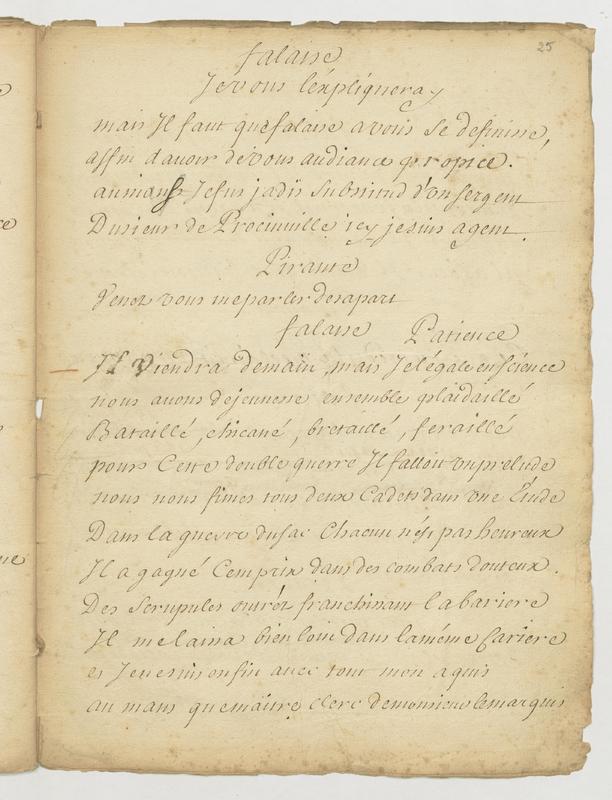 25
falaise
Je vous léxpliqueray
mais Il faut que falaise a vous se definisse,
affin d'avoir de vous audiance propice.
au mans Je fus jadis substitud d'un sergent
Du sieur de Procinville icy je suis agent.
Pirante
Venez vous me parler de sa part
falaise Patience
Il viendra demain, mais Je legale en science
nous avons de jeunesse ensemble plaidaillé
Bataillé, chicané, bretaillé, feraillé
pour Cette double guerre Il falloit un prelude
nous nous fimes tous deux Cadets dans une Étude
Dans la guerre du sac Chacun nést pas heureux
Il a gagné Cemprix dans des combats douteux.
Des scrupules outréz franchissant la bariere
Il me laissa bien loin dans la méme Cariere
et Je ne suis enfin avec tout mon aquis
au mans que maitre clerc de monsieur le marquis